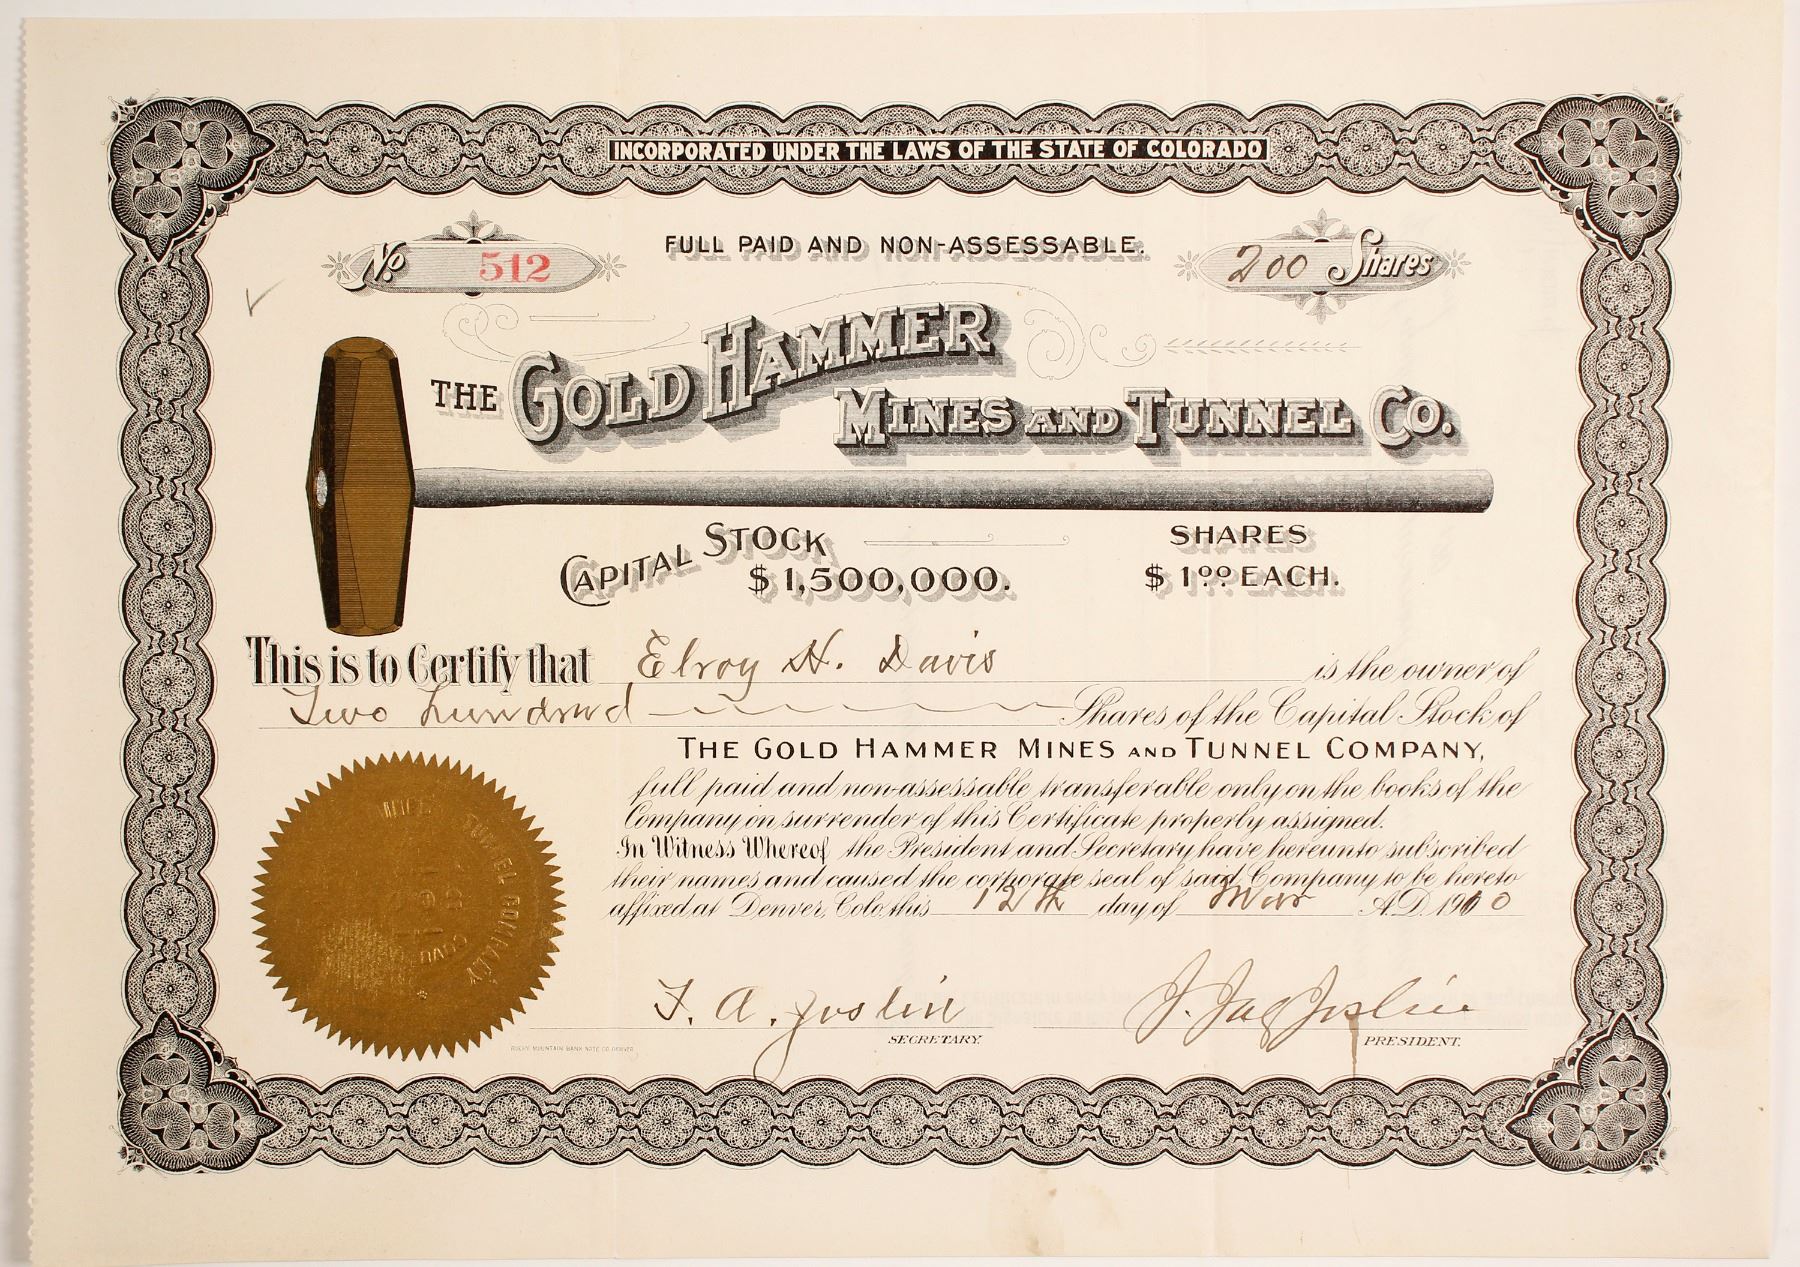 INCORPORATED UNDER THE LAWS OF THE STATE OF COLORADO
No. 512
FULL PAID AND NON-ASSESSABLE.
200 Shares
THE GOLD HAMMER
MINES AND TUNNEL CO.
CAPITAL STOCK
$1,500,000.
SHARES
$1.00 EACH.
This is to Certify that Elroy H. Davis is the owner of
Two hundred Shares of the Capital Stock of
THE GOLD HAMMER MINES AND TUNNEL COMPANY,
full paid and non-assessable transferable only on the books of the
Company on surrender of this Certificate properly assigned.
In Witness Whereof the President and Secretary have hereunto subscribed
their names and caused the corporate seal of said Company to be hereto
affixed at Denver, Colo. this 12th day of Mar A.D. 1910
TUNNEL COMPANY
F. A. Joslin
SECRETARY.
J. Jay Joslin
PRESIDENT.
ROCKY MOUNTAIN BANK NOTE CO. DENVER